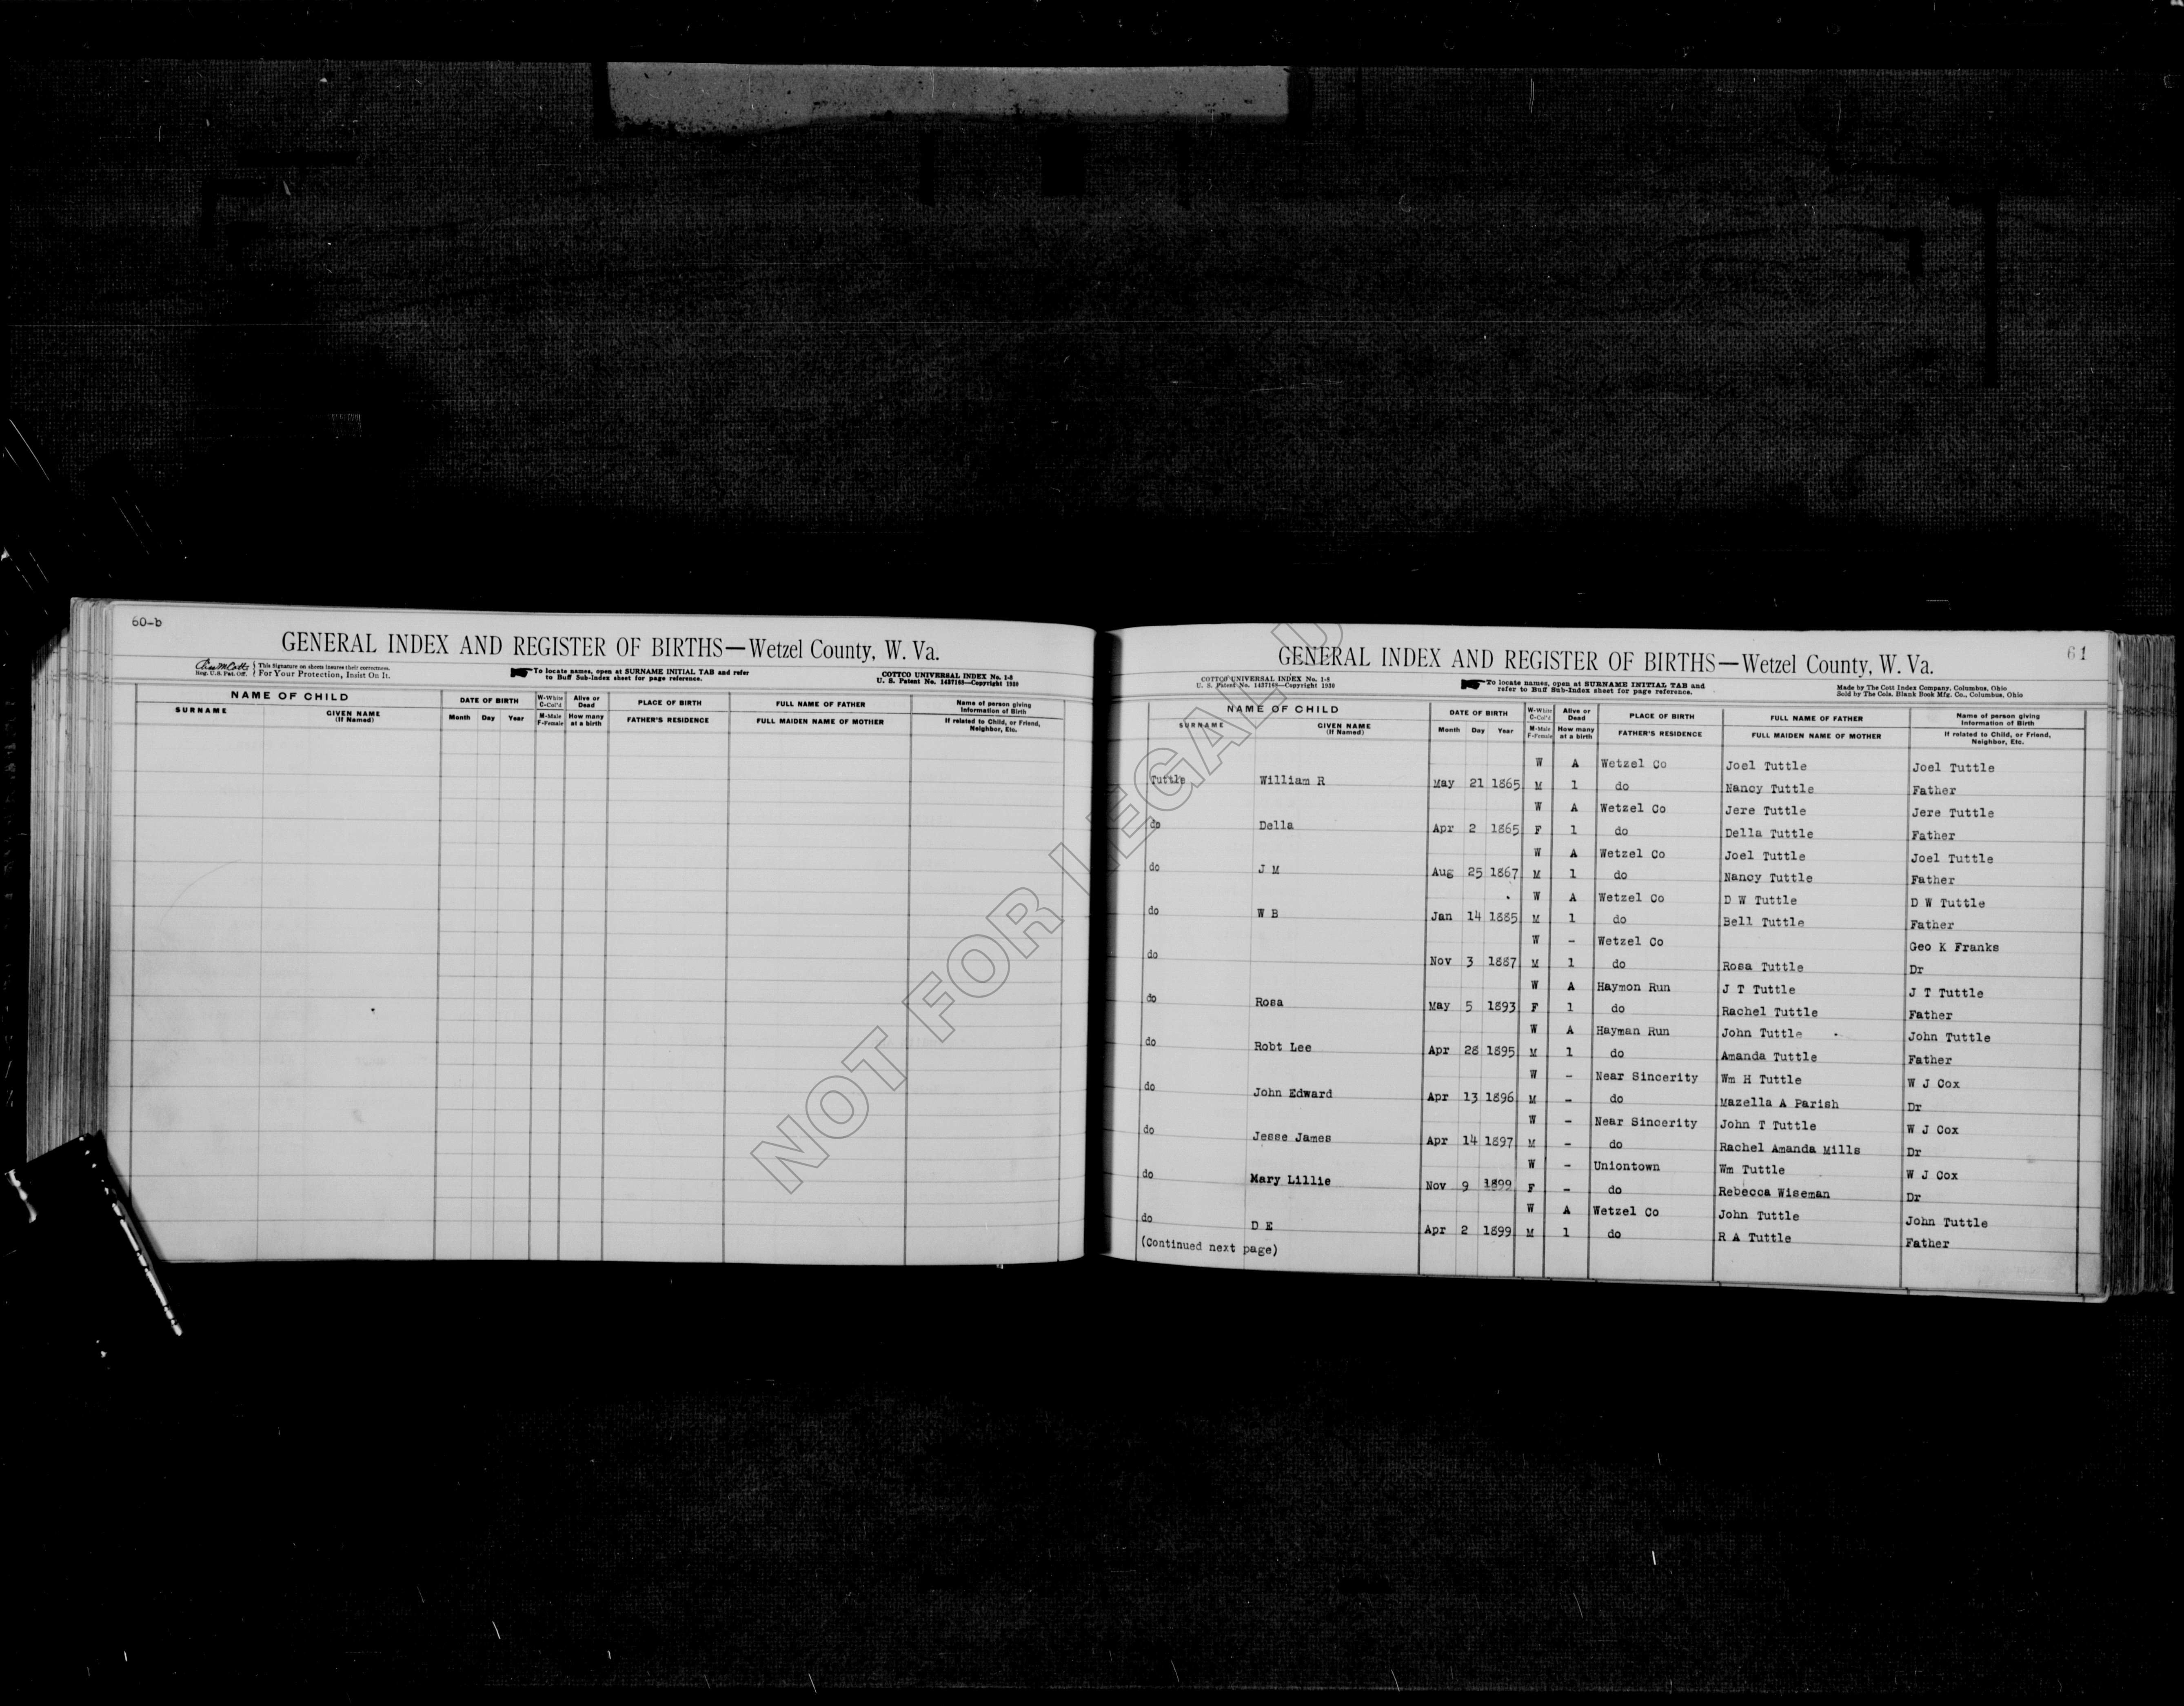 60-b
GENERAL INDEX AND REGISTER OF BIRTHS—Wetzel County, W. Va.
This Signature on sheets insures their correctness.
Reg. U. S. Pat. Off. For Your Protection, Insist On It.
To locate names, open at SURNAME INITIAL TAB and refer
to Buff Sub-Index sheet for page reference.
COTTCO UNIVERSAL INDEX No. 1-8
U. S. Patent No. 1437168—Copyright 1930
NAME OF CHILD
SURNAME
GIVEN NAME
(If Named)
DATE OF BIRTH
Month Day Year
W-White
C-Col'd
M-Male
F-Female
Alive or
Dead
How many
at a birth
PLACE OF BIRTH
FATHER'S RESIDENCE
FULL NAME OF FATHER
FULL MAIDEN NAME OF MOTHER
Name of person giving
Information of Birth
If related to Child, or Friend,
Neighbor, Etc.
61
GENERAL INDEX AND REGISTER OF BIRTHS—Wetzel County, W. Va.
COTTCO UNIVERSAL INDEX No. 1-8
U. S. Patent No. 1437168—Copyright 1930
To locate names, open at SURNAME INITIAL TAB and
refer to Buff Sub-Index sheet for page reference.
Made by The Cott Index Company, Columbus, Ohio
Sold by The Cols. Blank Book Mfg. Co., Columbus, Ohio
NAME OF CHILD
SURNAME
GIVEN NAME
(If Named)
DATE OF BIRTH
Month Day Year
W-White
C-Col'd
M-Male
F-Female
Alive or
Dead
How many
at a birth
PLACE OF BIRTH
FATHER'S RESIDENCE
FULL NAME OF FATHER
FULL MAIDEN NAME OF MOTHER
Name of person giving
Information of Birth
If related to Child, or Friend,
Neighbor, Etc.
W A Wetzel Co Joel Tuttle Joel Tuttle
Tuttle William R May 21 1865 M 1 do Nancy Tuttle Father
W A Wetzel Co Jere Tuttle Jere Tuttle
do Della Apr 2 1865 F 1 do Della Tuttle Father
W A Wetzel Co Joel Tuttle Joel Tuttle
do J M Aug 25 1867 M 1 do Nancy Tuttle Father
W A Wetzel Co D W Tuttle D W Tuttle
do W B Jan 14 1885 M 1 do Bell Tuttle Father
W - Wetzel Co Geo K Franks
do Nov 3 1887 M 1 do Rosa Tuttle Dr
W A Haymon Run J T Tuttle J T Tuttle
do Rosa May 5 1893 F 1 do Rachel Tuttle Father
W A Hayman Run John Tuttle John Tuttle
do Robt Lee Apr 28 1895 M 1 do Amanda Tuttle Father
W - Near Sincerity Wm H Tuttle W J Cox
do John Edward Apr 13 1896 M - do Mazella A Parish Dr
W - Near Sincerity John T Tuttle W J Cox
do Jesse James Apr 14 1897 M - do Rachel Amanda Mills Dr
W - Uniontown Wm Tuttle W J Cox
do Mary Lillie Nov 9 1899 F - do Rebecca Wiseman Dr
W A Wetzel Co John Tuttle John Tuttle
do D E Apr 2 1899 M 1 do R A Tuttle Father
(Continued next page)
NOT FOR LEGAL U